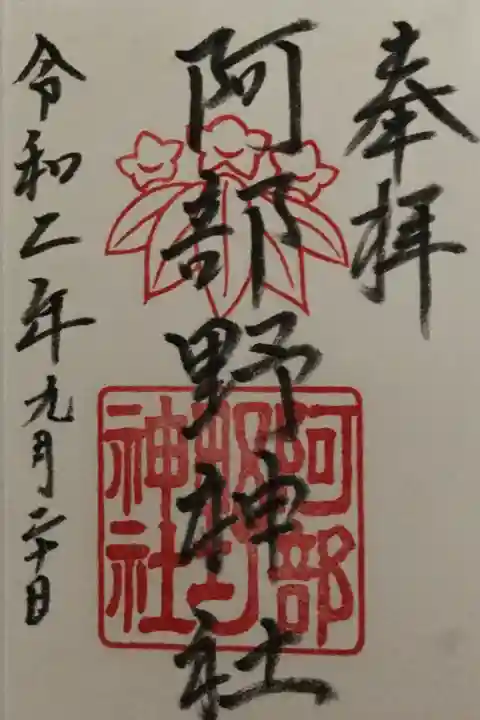 奉拝
阿部野神社
阿部
野
神社
令和二年九月二十日